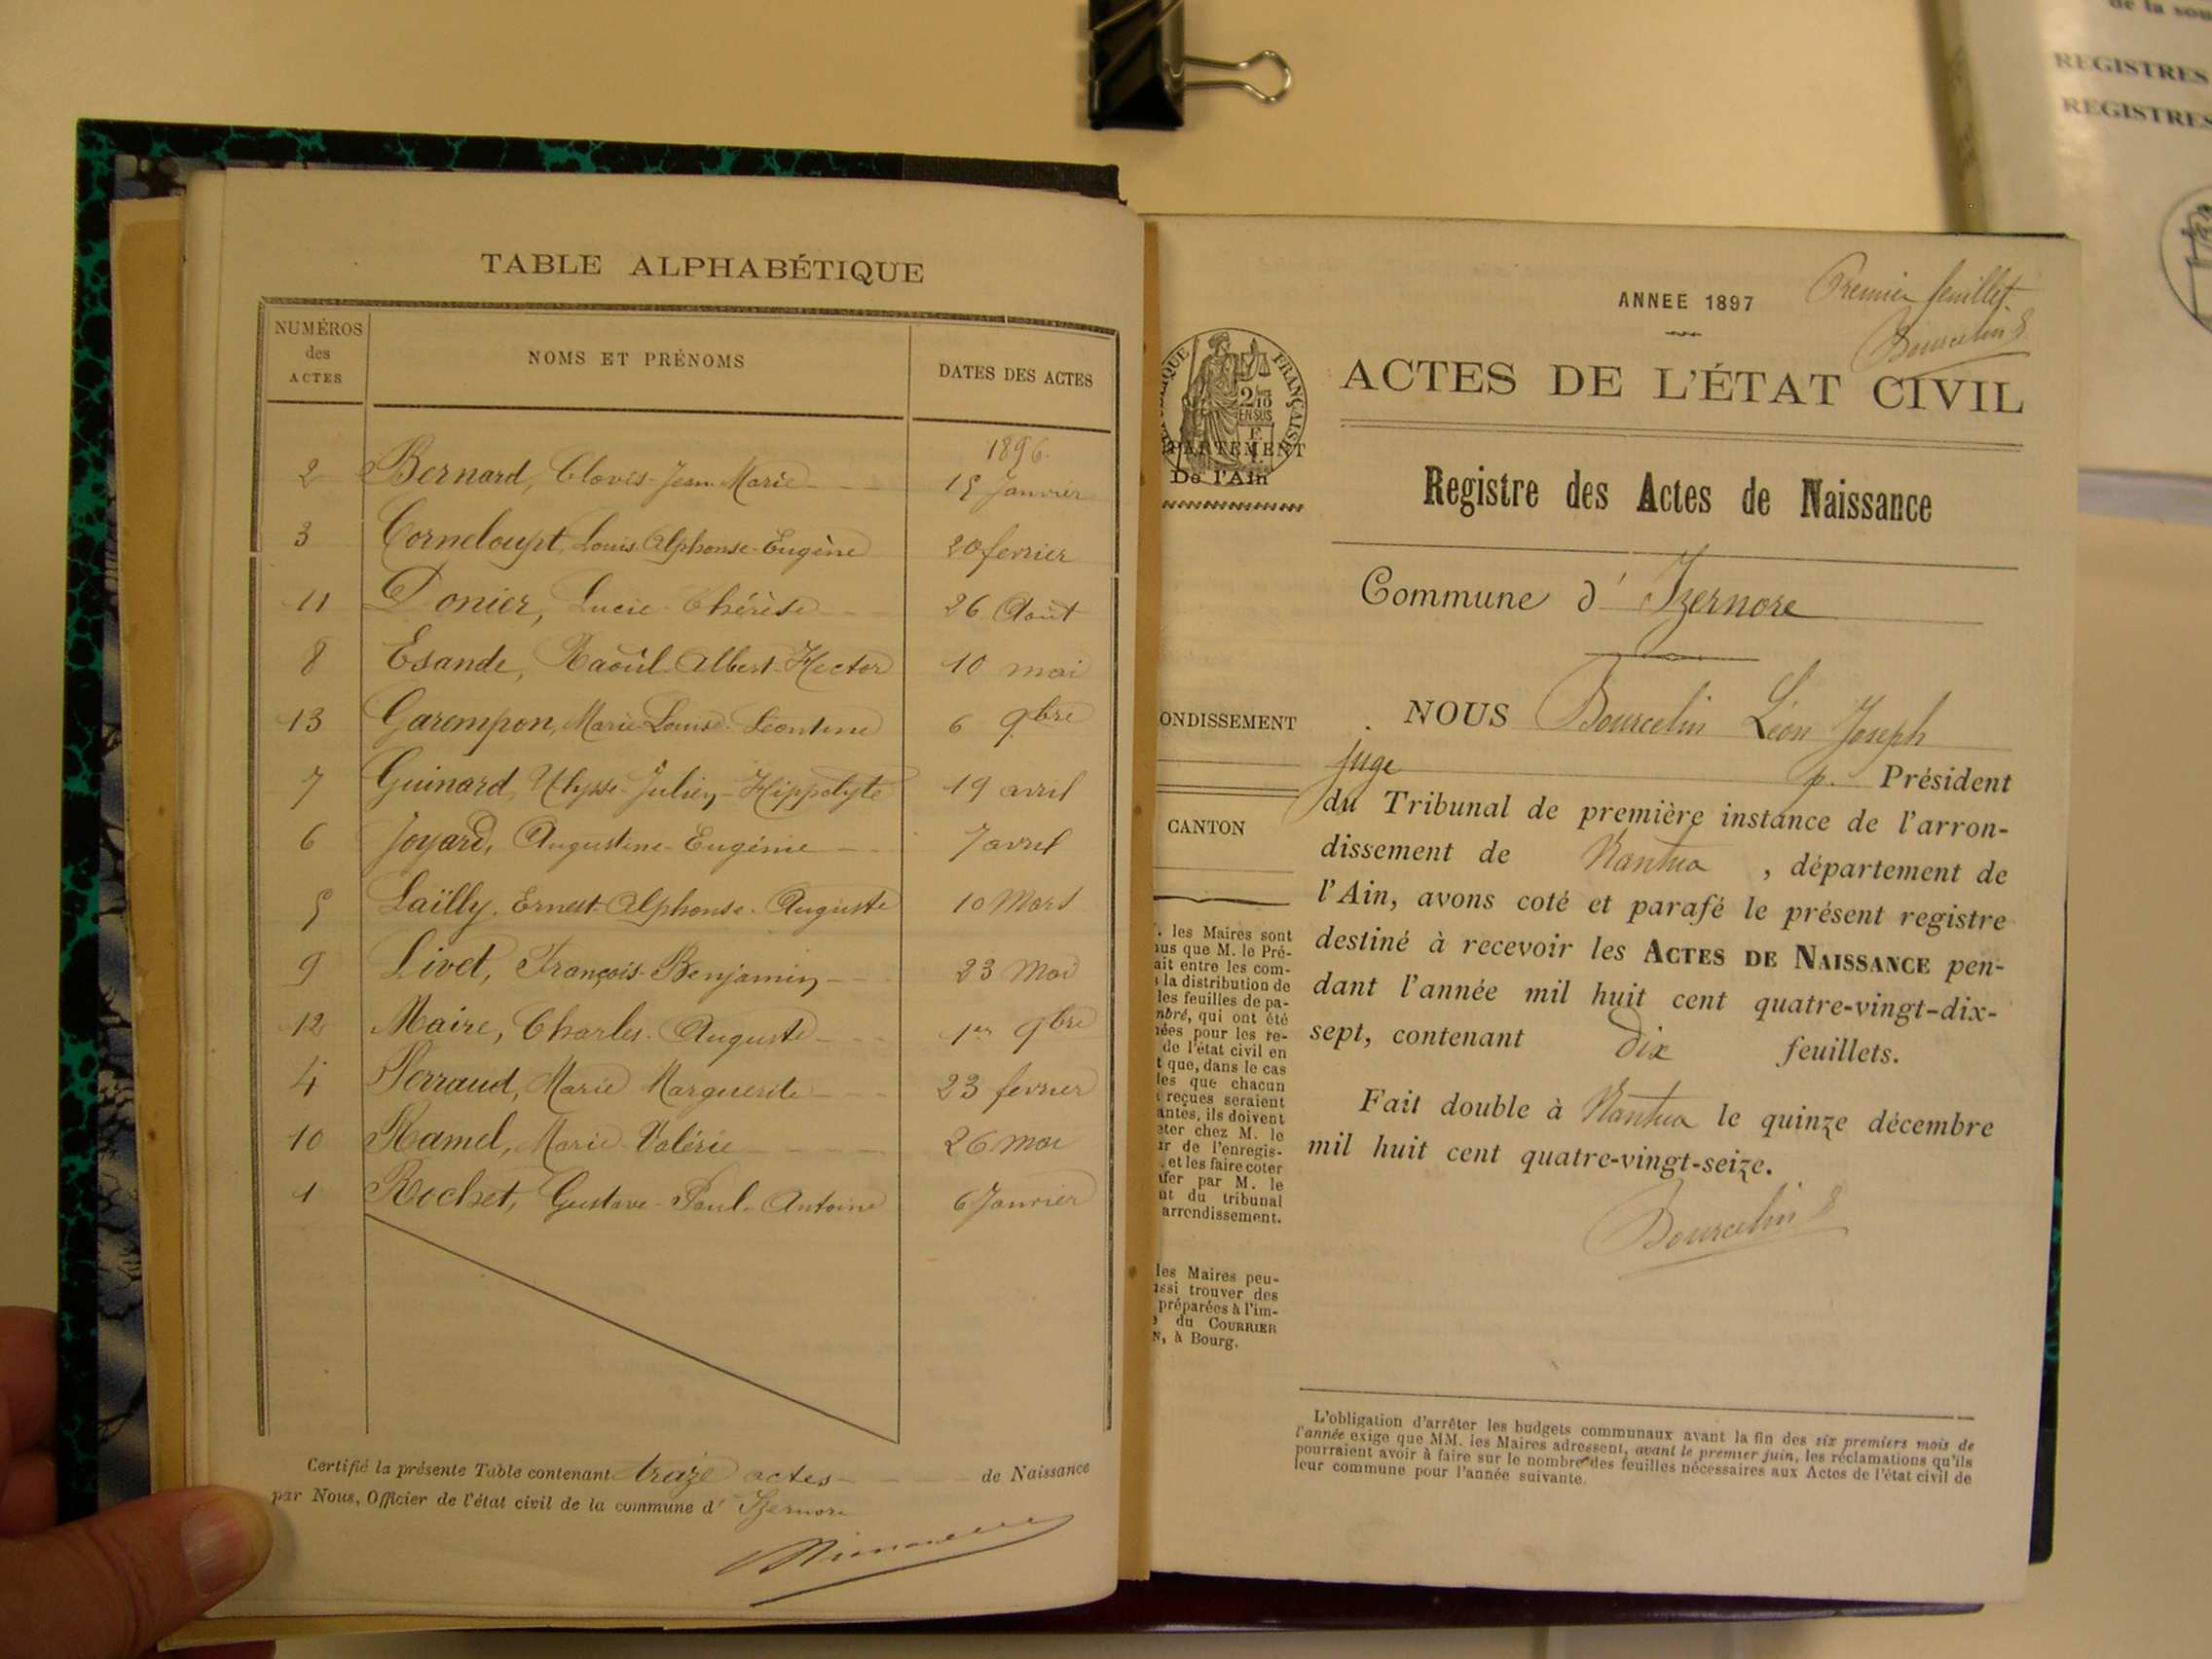 TABLE ALPHABÉTIQUE
NUMÉROS des ACTES
NOMS ET PRÉNOMS
DATES DES ACTES
1896.
2 Bernard, Clovis-Jean-Marie 15 Janvier
3 Corneloupt, Louis-Alphonse-Eugène 20 fevrier
11 Donier, Lucie-Thérèse 26 Août
8 Esande, Raoûl-Albert-Hector 10 mai
13 Garempon, Marie-Louise-Léontine 6 9bre
7 Guinard, Ulysse-Julien-Hippolyte 19 avril
6 Joyard, Augustine-Eugénie 7 avril
5 Laïlly, Ernest-Alphonse-Auguste 10 Mars
9 Livet, François-Benjamin 23 Mai
12 Maire, Charles-Auguste 1er 9bre
4 Perraud, Marie Marguerite 23 fevrier
10 Ramel, Marie-Valérie 26 mai
1 Rochet, Gustave-Paul-Antoine 6 Janvier
Certifié la présente Table contenant treize actes de Naissance
par Nous, Officier de l'état civil de la commune d' Izernore
ANNEE 1897
Premier feuillet.
Bourcelin
ACTES DE L'ÉTAT CIVIL
FRANÇAISE
2 10 EN SUS
De l'Ain
Registre des Actes de Naissance
Commune d' Izernore
ONDISSEMENT
CANTON
NOUS Bourcelin Léon Joseph
juge p. Président
du Tribunal de première instance de l'arron-
dissement de Nantua, département de
l'Ain, avons coté et parafé le présent registre
destiné à recevoir les ACTES DE NAISSANCE pen-
dant l'année mil huit cent quatre-vingt-dix-
sept, contenant dix feuillets.
Fait double à Nantua le quinze décembre
mil huit cent quatre-vingt-seize.
Bourcelin
. les Maires sont
us que M. le Pré-
ait entre les com-
la distribution de
les feuilles de pa-
mbré, qui ont été
ées pour les re-
de l'état civil en
t que, dans le cas
les que chacun
reçues seraient
antes, ils doivent
eter chez M. le
ur de l'enregis-
, et les faire coter
fer par M. le
nt du tribunal
arrondissement.
les Maires peu-
ussi trouver des
préparées à l'im-
du COURRIER
N, à Bourg.
L'obligation d'arrêter les budgets communaux avant la fin des six premiers mois de
l'année exige que MM. les Maires adressent, avant le premier juin, les réclamations qu'ils
pourraient avoir à faire sur le nombre des feuilles nécessaires aux Actes de l'état civil de
leur commune pour l'année suivante.
de la sou
REGISTRES
REGISTRES